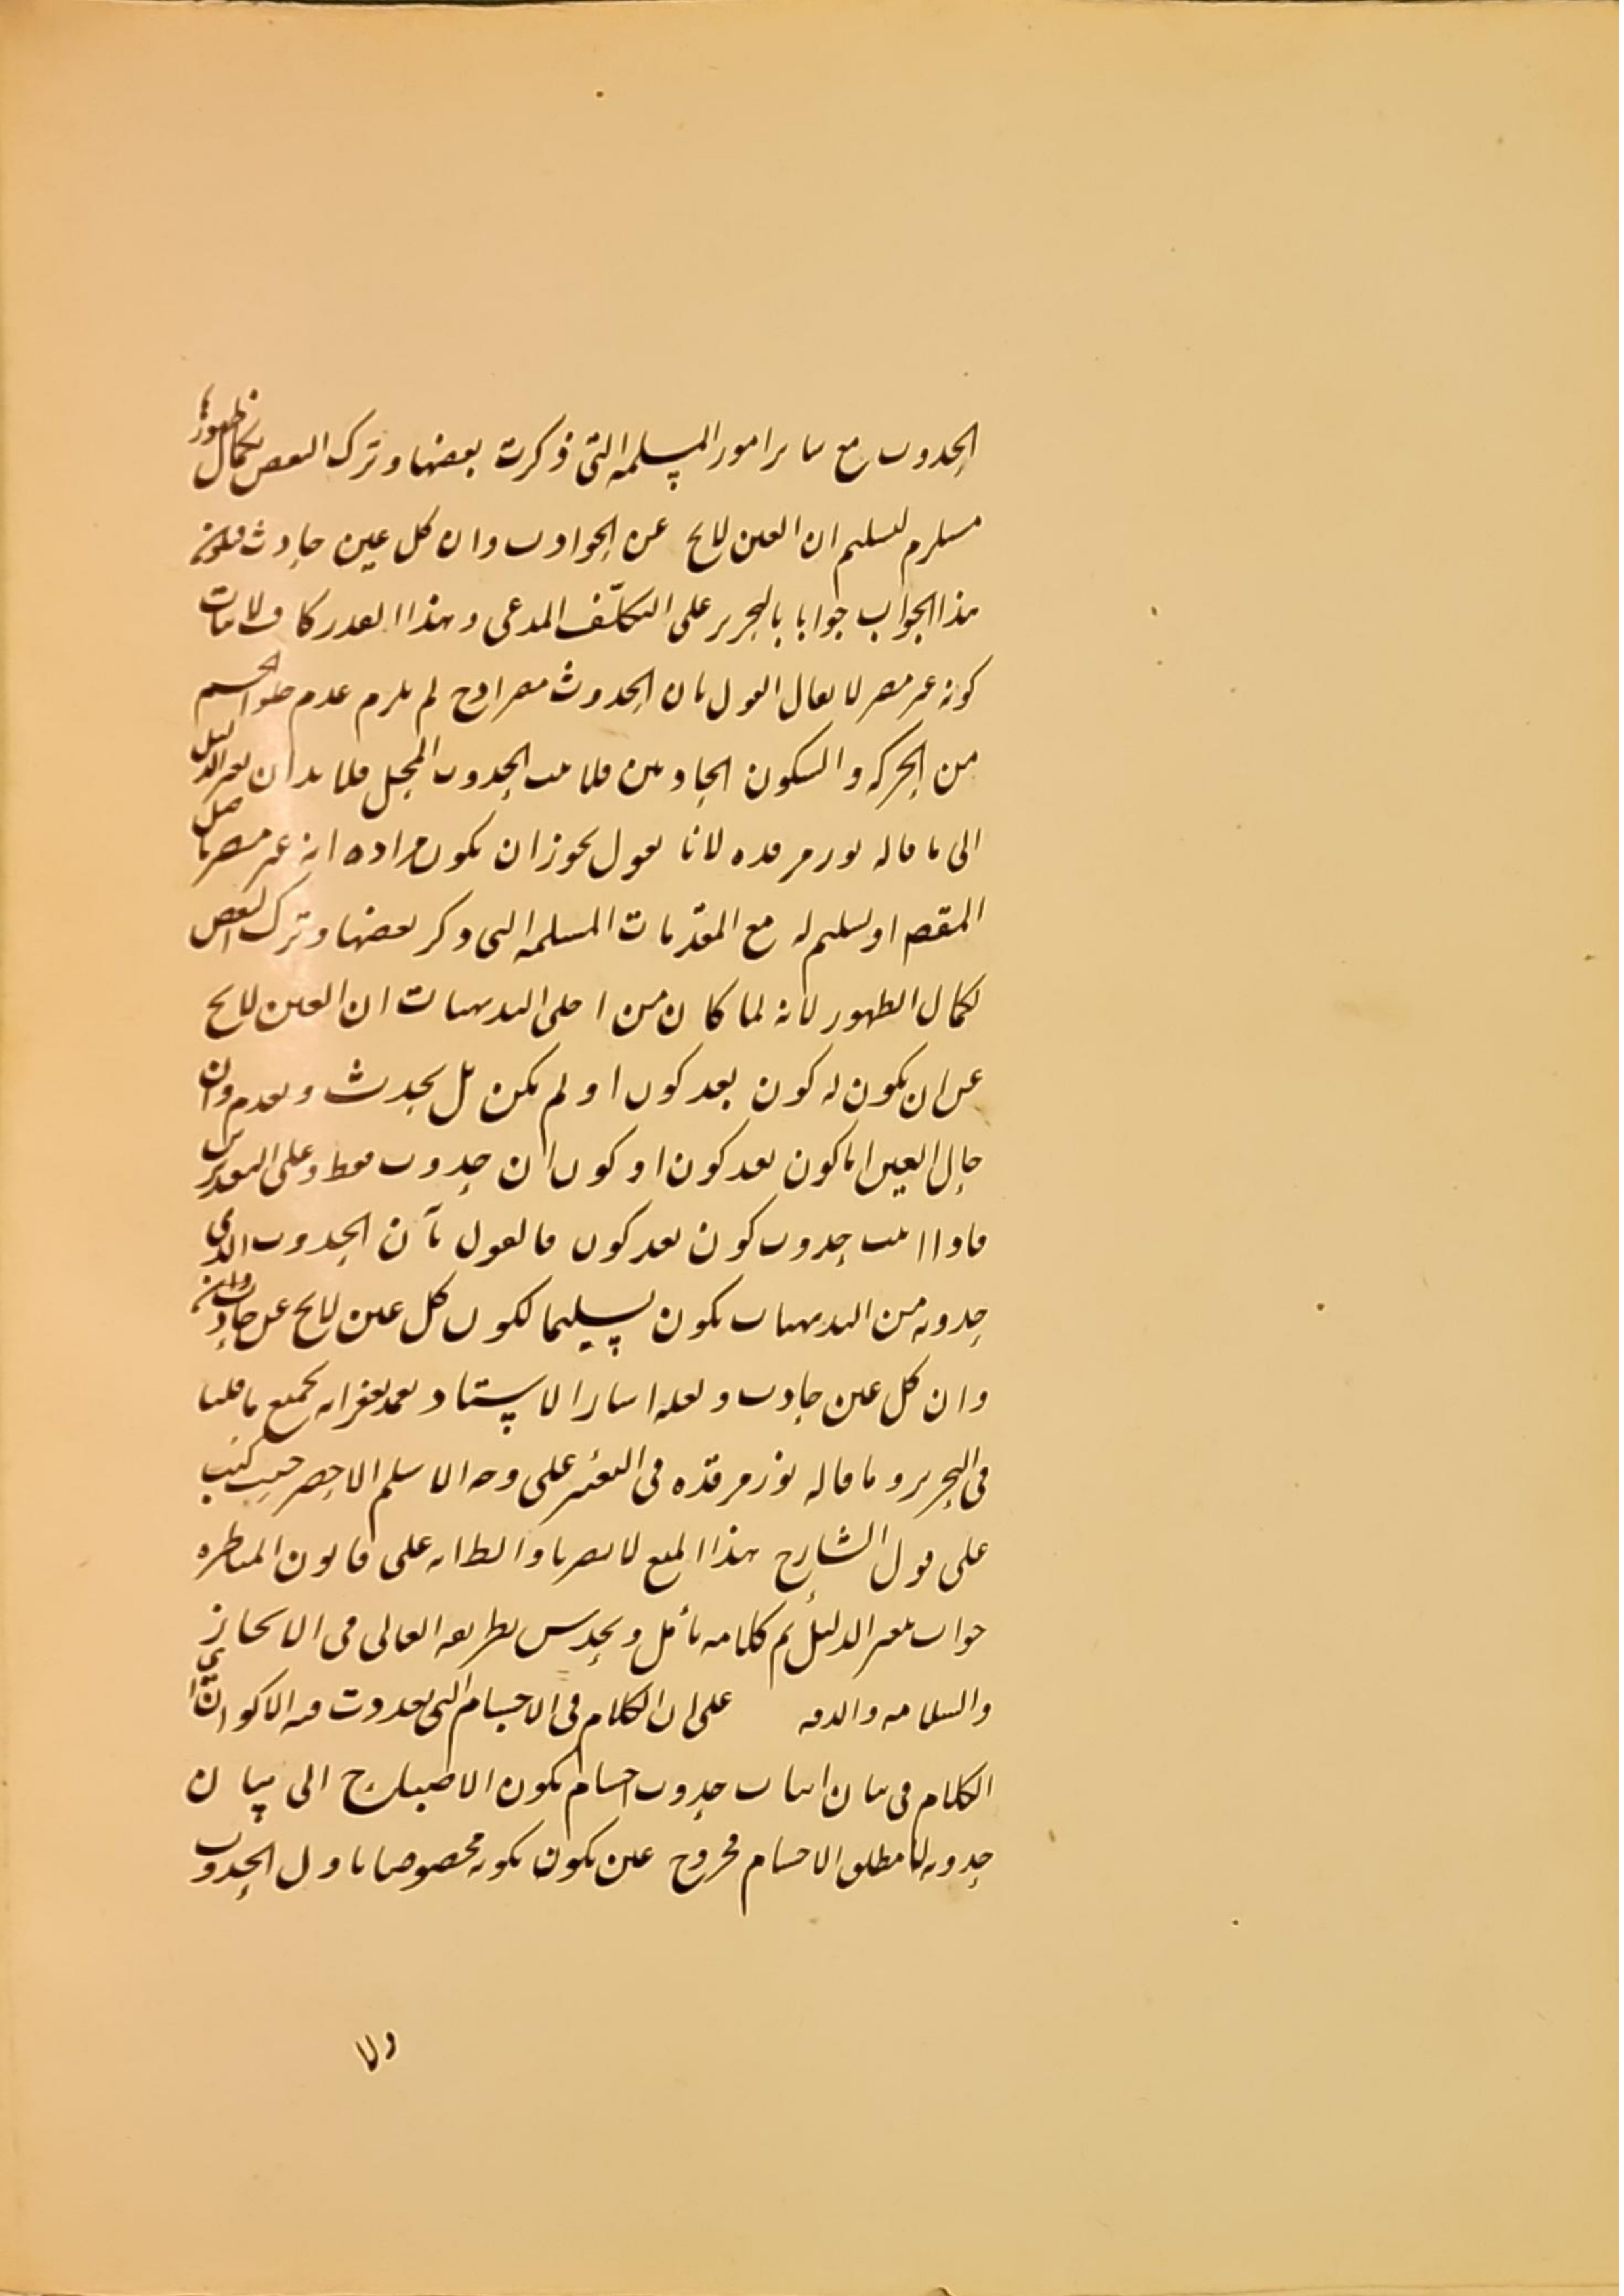 الحدوث مع سائر امور المسلمة التى ذكرت بعضها وترك البعض لكمال ظهورها
مستلزم لتسليم ان العين لا يخ عن الحوادث وان كل عين حادث فيكون
هذا الجواب جوابا بالتحرير على التكلّف المدعى وهذا القدر كاف لاثبات
كونه غير مضر لا يقال القول بان الحدوث مضر اذ ح لم يلزم عدم خلو الجسم
من الحركة والسكون الحادثين فلا يثبت الحدوث المحل فلا بد ان يغير الدليل
الى ما قاله نور مرقده لانا نقول يجوز ان يكون مراده انه غير مضر باصل
المقصد او تسليم له مع المقدّمات المسلمة التى ذكر بعضها وترك البعض
لكمال الظهور لانه لما كان من اجلى البديهيات ان العين لا يخ
عن ان يكون له كون بعد كون او لم يكن بل يحدث ويعدم وان
حال العين اما كون بعد كون او كون ان حدوث فقط وعلى التقديرين
فاذا اثبت حدوث كون بعد كون فالقول بأن الحدوث الذى
حدوثه من البديهيات يكون تسليما لكون كل عين لا يخ عن حادث وانه
وان كل عين حادث ولعله اشار الاستاد تغمد بغفرانه بجميع ما قلنا
فى التحرير وما قاله نور مرقدّه فى التغيير على وجه الاسلم الاخصر حيث كتب
على قول الشارح هذا المنع لا يضرنا والظاهر على قانون المناظره
جواب بتغيير الدليل تم كلامه تأمل ويحدس بطريقه العالى فى الايجاز
والسلامه والدقه على ان الكلام فى الاجسام التى تعددت فيه الاكوان اى
الكلام فى بيان اثبات حدوث اجسام يكون الاحتياج الى بيان
حدوثه لا مطلق الاجسام فخروج عين يكون بكونه مخصوصا باول الحدوث
ولا